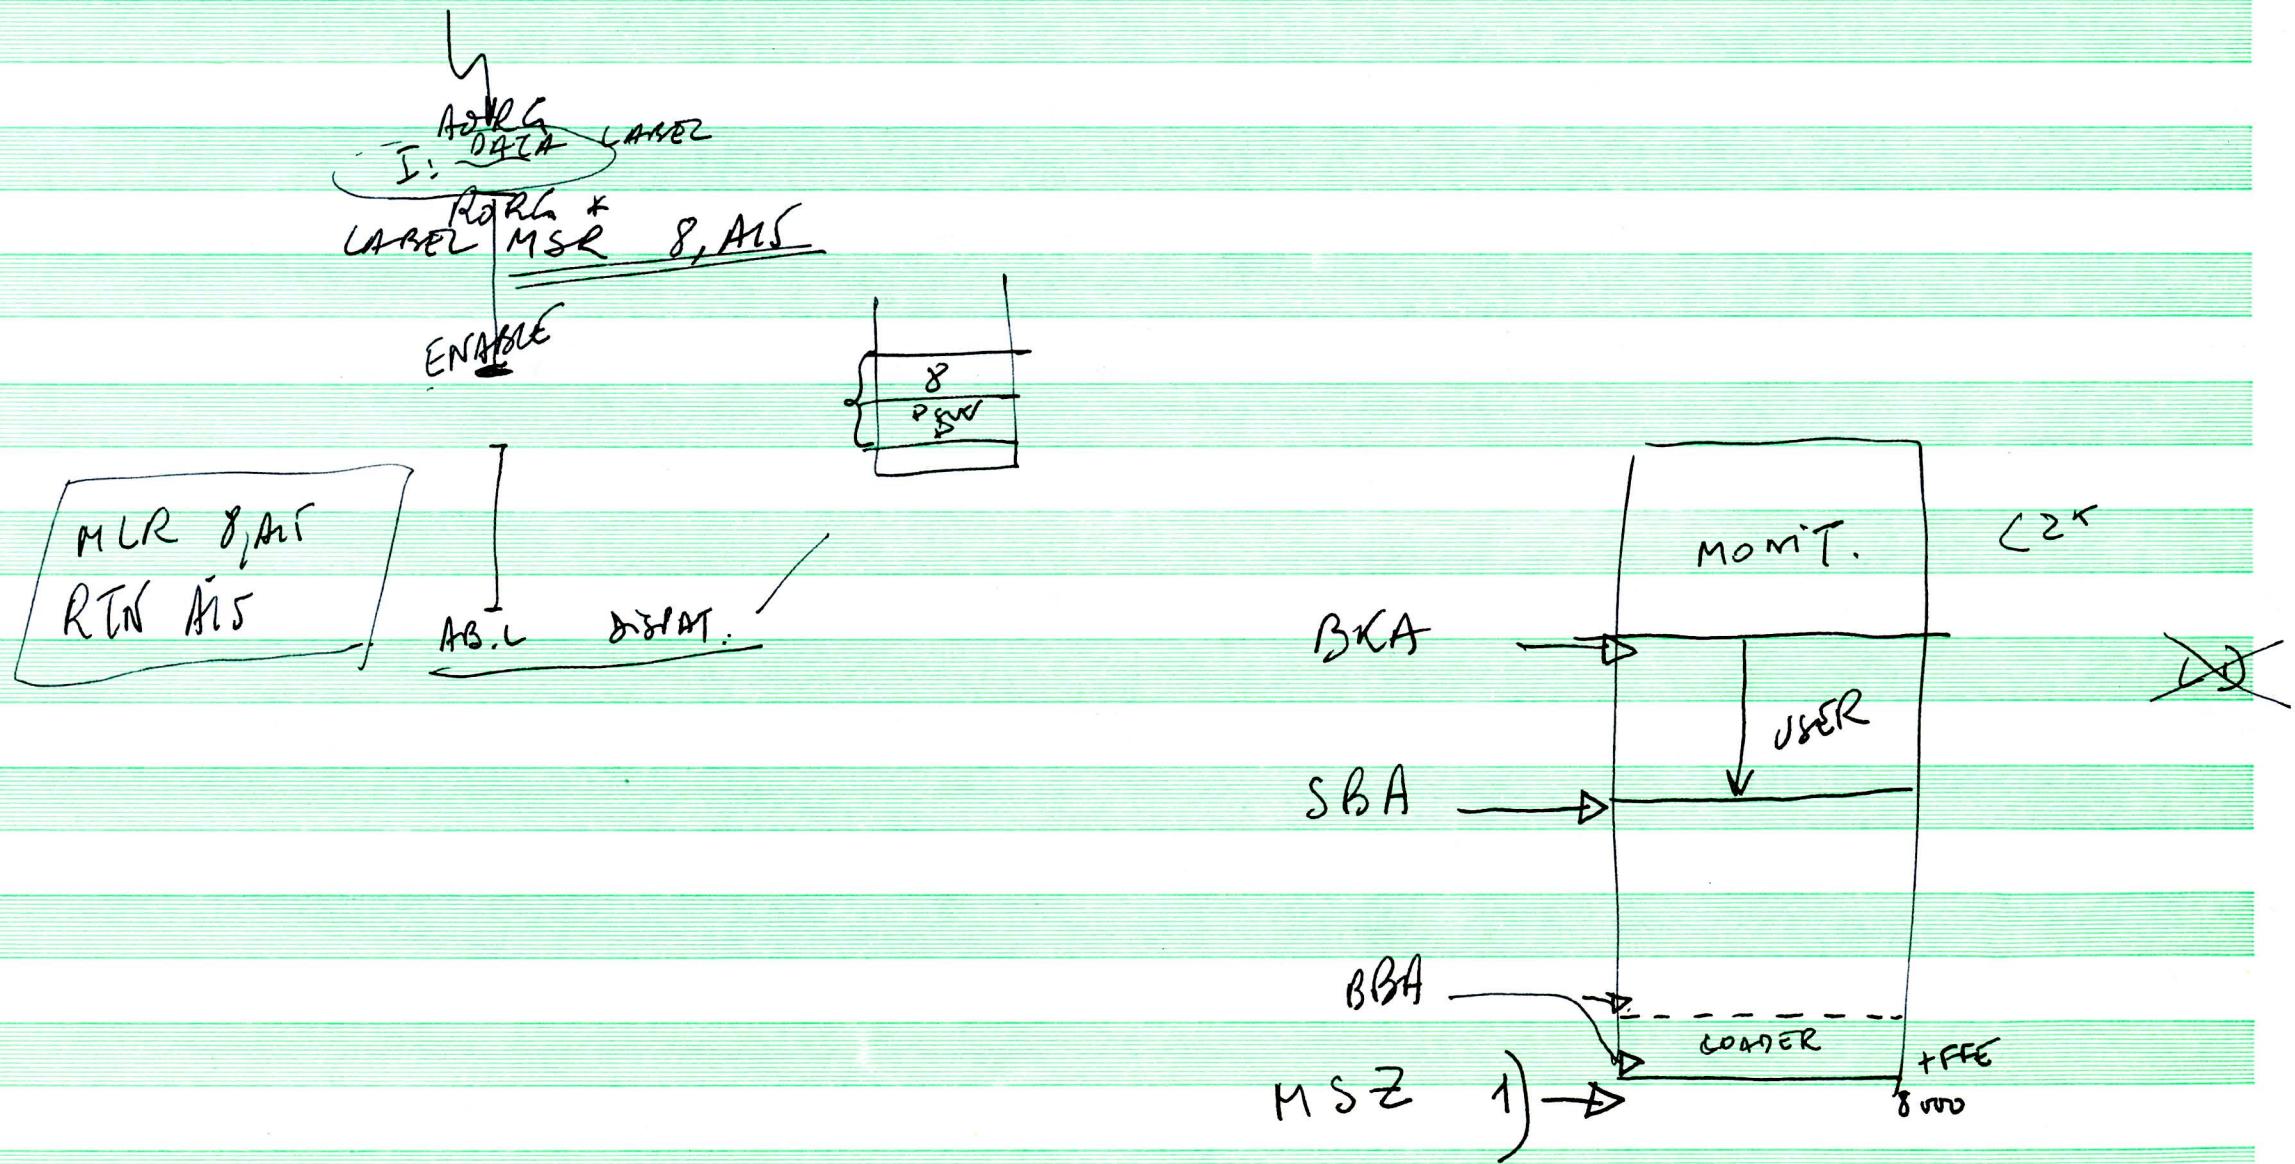 AORG
I: DATA LABEL
RORG *
LABEL MSR 8, A15
ENABLE
8
PSW
MLR 8, A15
RTN A15
AB.L DISPAT.
MONIT.
BKA
USER
SBA
BBA
LOADER
MSZ 1)
8000